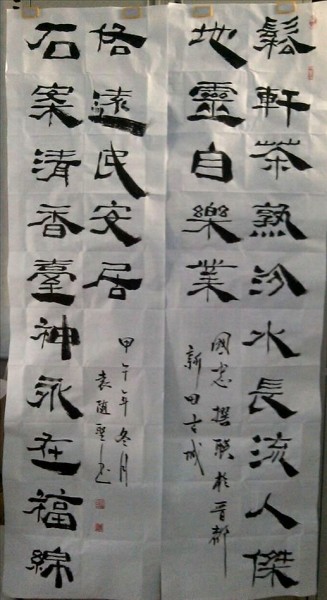 鬆軒茶熟汾水長流人傑
地靈自樂業
國忠撰聯於晋都
新田古城
石案清香臺神永在福綿
格遠民安居
甲午年冬月
袁随